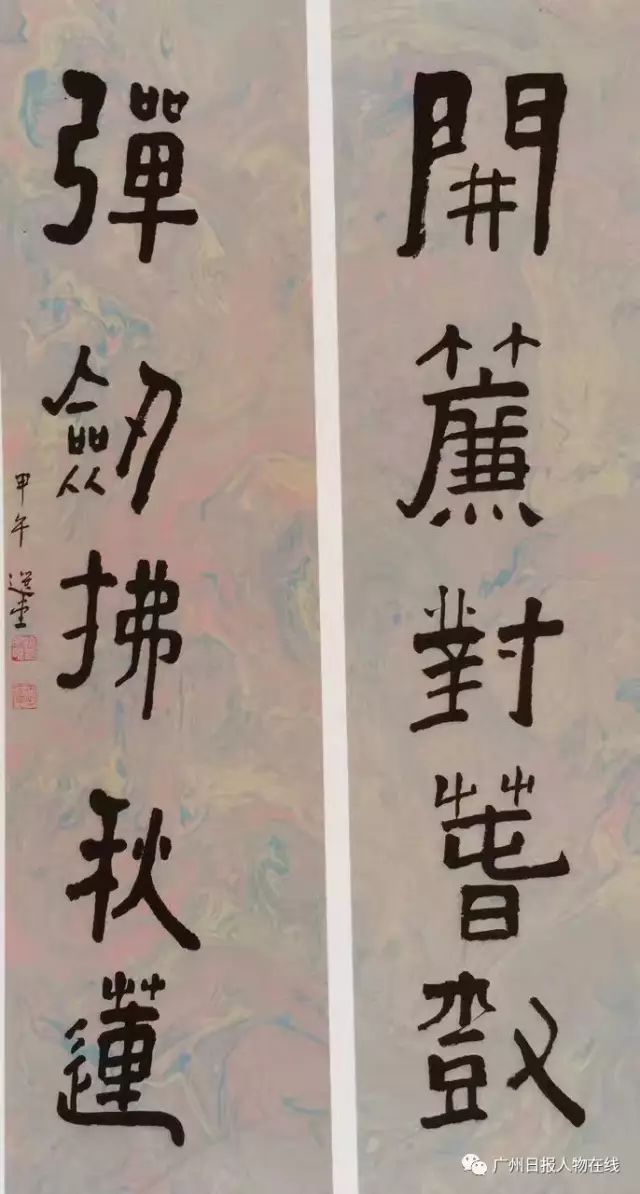 開簾對萅樹
彈劒拂秋蓮
甲午 選堂
广州日报人物在线